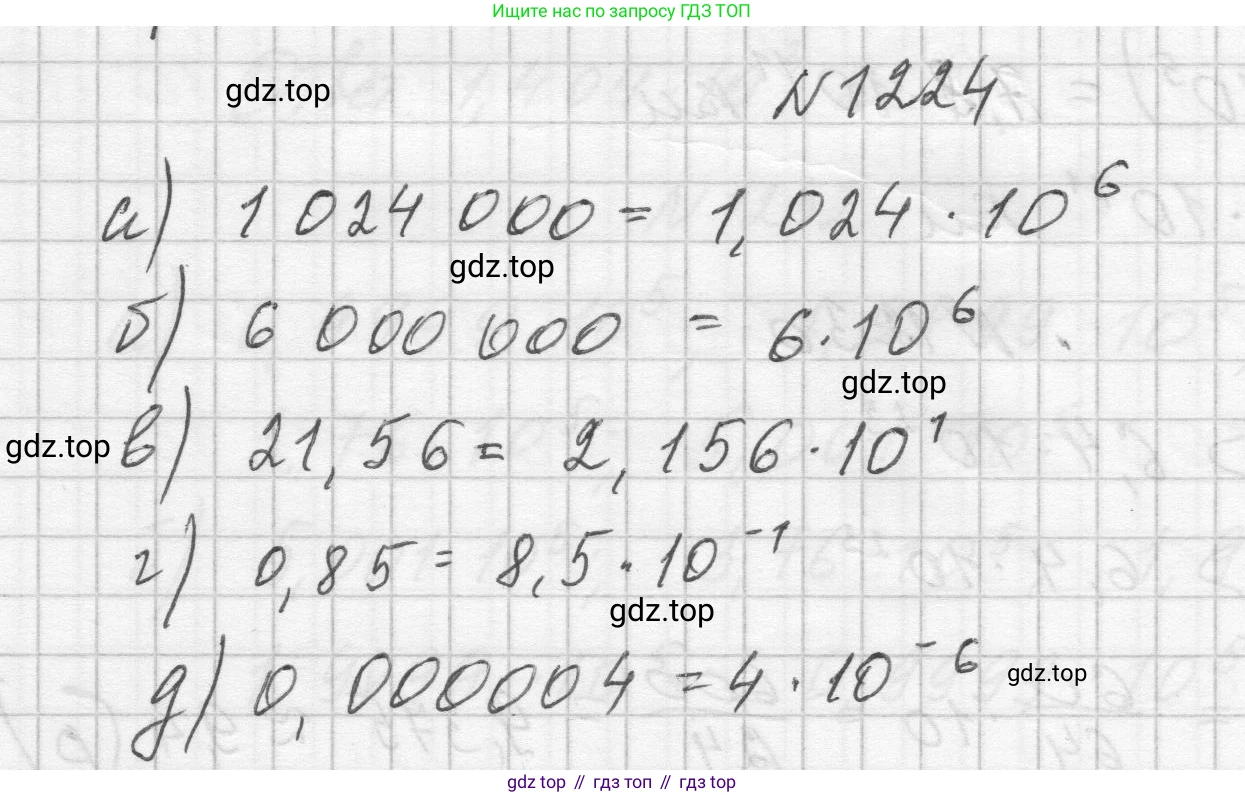 Ищите нас по запросу ГДЗ ТОП
gdz.top
N 1224
а) 1 024 000 = 1,024 · 10⁶
gdz.top
б) 6 000 000 = 6 · 10⁶
gdz.top
gdz.top
в) 21,56 = 2,156 · 10¹
г) 0,85 = 8,5 · 10⁻¹
gdz.top
д) 0,000004 = 4 · 10⁻⁶
gdz.top
gdz top // гдз топ // gdz top